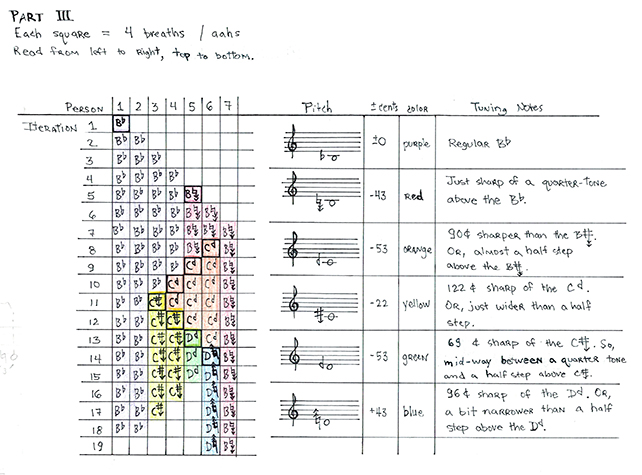 PART III
Each square = 4 breaths / aahs
Read from left to right, top to bottom.
PERSON 1 2 3 4 5 6 7
ITERATION 1 B♭
2 B♭ B♭
3 B♭ B♭ B♭
4 B♭ B♭ B♭ B♭
5 B♭ B♭ B♭ B♭ B♮↓
6 B♭ B♭ B♭ B♭ B♮↓ B♮↓
7 B♭ B♭ B♭ B♭ B♮↓ B♮↓ B♮↓
8 B♭ B♭ B♭ B♭ B♮↓ Cd B♮↓
9 B♭ B♭ B♭ B♭ Cd Cd B♮↓
10 B♭ B♭ B♭ Cd Cd Cd B♮↓
11 B♭ B♭ C♯↓ Cd Cd Cd B♮↓
12 B♭ B♭ C♯↓ C♯↓ Cd Cd B♮↓
13 B♭ B♭ C♯↓ C♯↓ Dd Cd B♮↓
14 B♭ B♭ C♯↓ C♯↓ Dd D♮↑ B♮↓
15 B♭ B♭ C♯↓ C♯↓ Dd D♮↑ B♮↓
16 B♭ B♭ C♯↓ C♯↓ D♮↑ B♮↓
17 B♭ B♭ C♯↓ D♮↑ B♮↓
18 B♭ B♭ D♮↑ B♮↓
19 D♮↑ B♮↓
Pitch ±cents color Tuning Notes
±0 purple Regular B♭
-43 Red Just sharp of a quarter-tone
above the B♭.
-53 orange 90¢ sharper than the B♮↓.
Or, almost a half step
above the B♮↓.
-22 yellow 122 ¢ sharp of the Cd.
Or, just wider than a half
step.
-53 green 69 ¢ sharp of the C♯↓. So,
mid-way between a quarter tone
and a half step above C♯.
+43 blue 96¢ sharp of the Dd. Or,
a bit narrower than a half
step above the Dd.